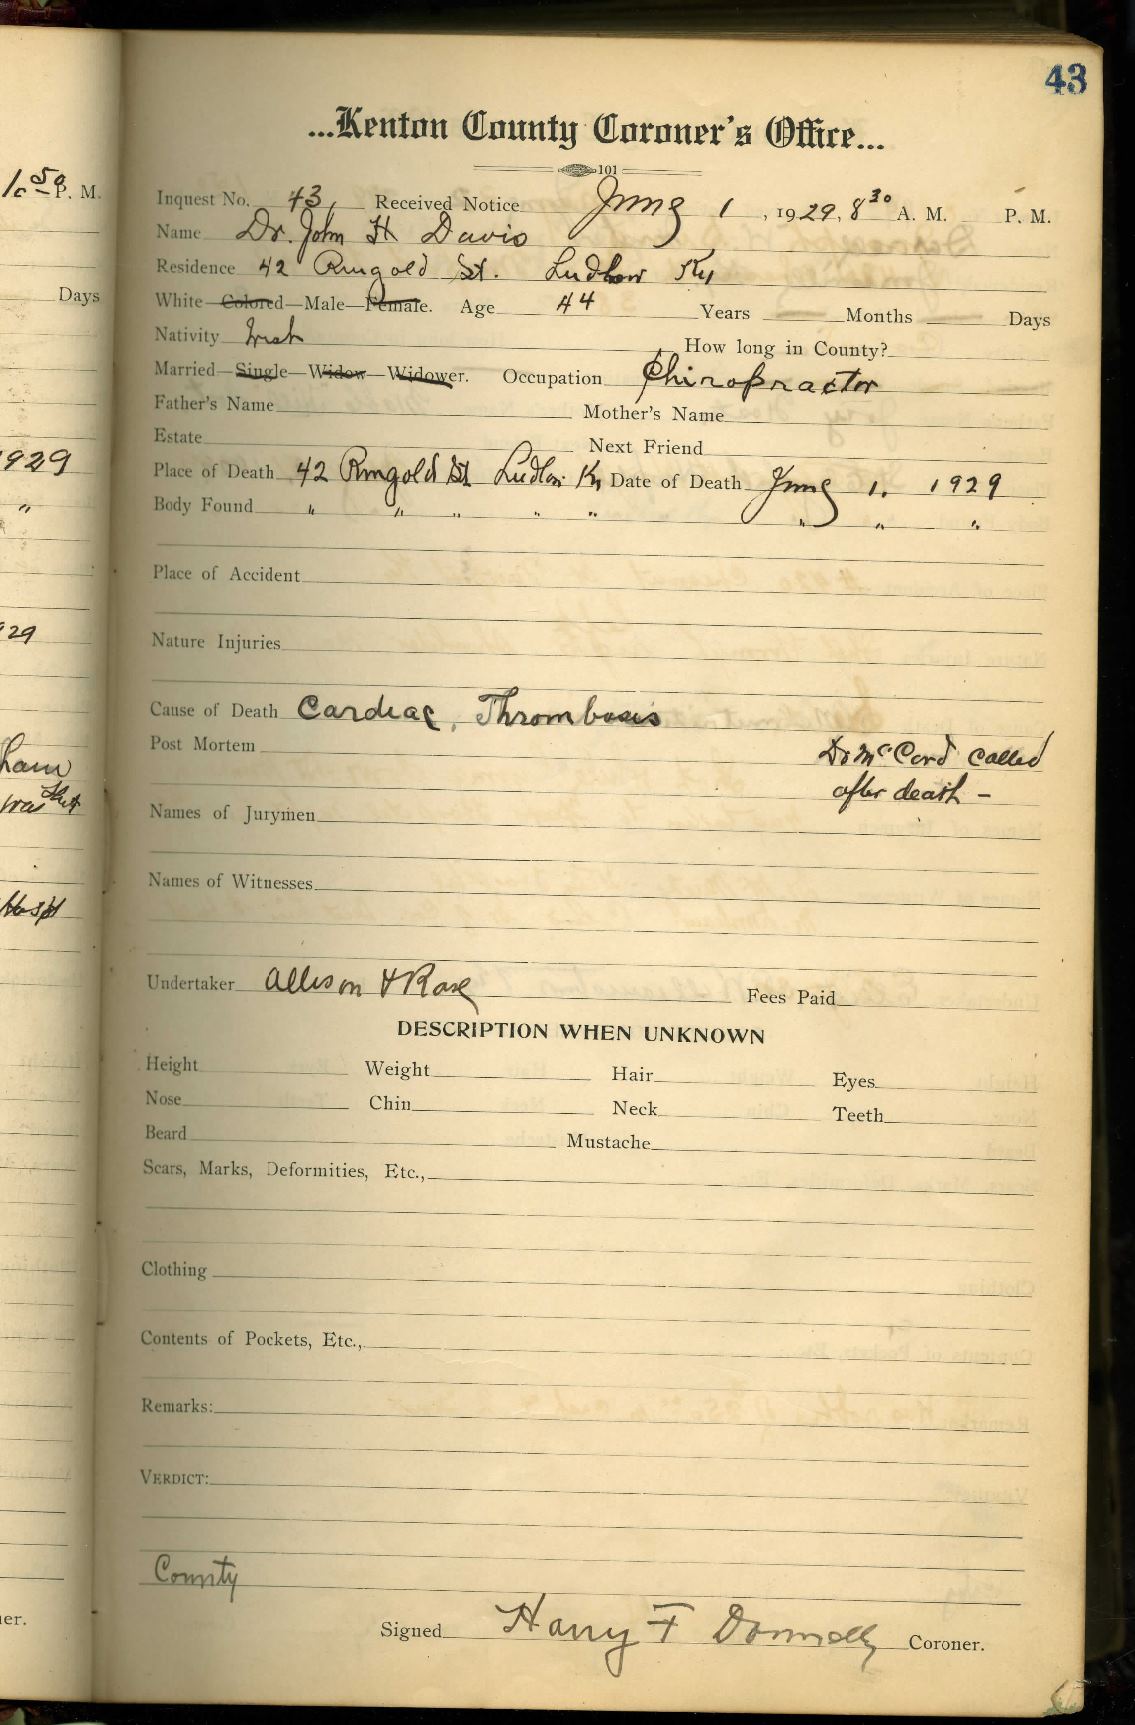 43
...Kenton County Coroner's Office...
101
Inquest No. 43, Received Notice June 1, 1929, 8 30 A. M. P. M.
Name Dr. John H Davis
Residence 42 Ringold St. Ludlow Ky
White—Colored—Male—Female. Age 44 Years Months Days
Nativity
How long in County?
Married—Single—Widow—Widower. Occupation Chiropractor
Father's Name Mother's Name
Estate Next Friend
Place of Death 42 Ringold St Ludlow Ky Date of Death June 1. 1929
Body Found " " " " " " " "
Place of Accident
Nature Injuries
Cause of Death Cardiac, Thrombosis
Post Mortem Dr McCord called
after death -
Names of Jurymen
Names of Witnesses
Undertaker Allison & Rose Fees Paid
DESCRIPTION WHEN UNKNOWN
Height Weight Hair Eyes
Nose Chin Neck Teeth
Beard Mustache
Scars, Marks, Deformities, Etc.,
Clothing
Contents of Pockets, Etc.,
Remarks:
VERDICT:
County
Signed Harry F Donnelly Coroner.
P. M.
Days
1929
"
29
Hosp